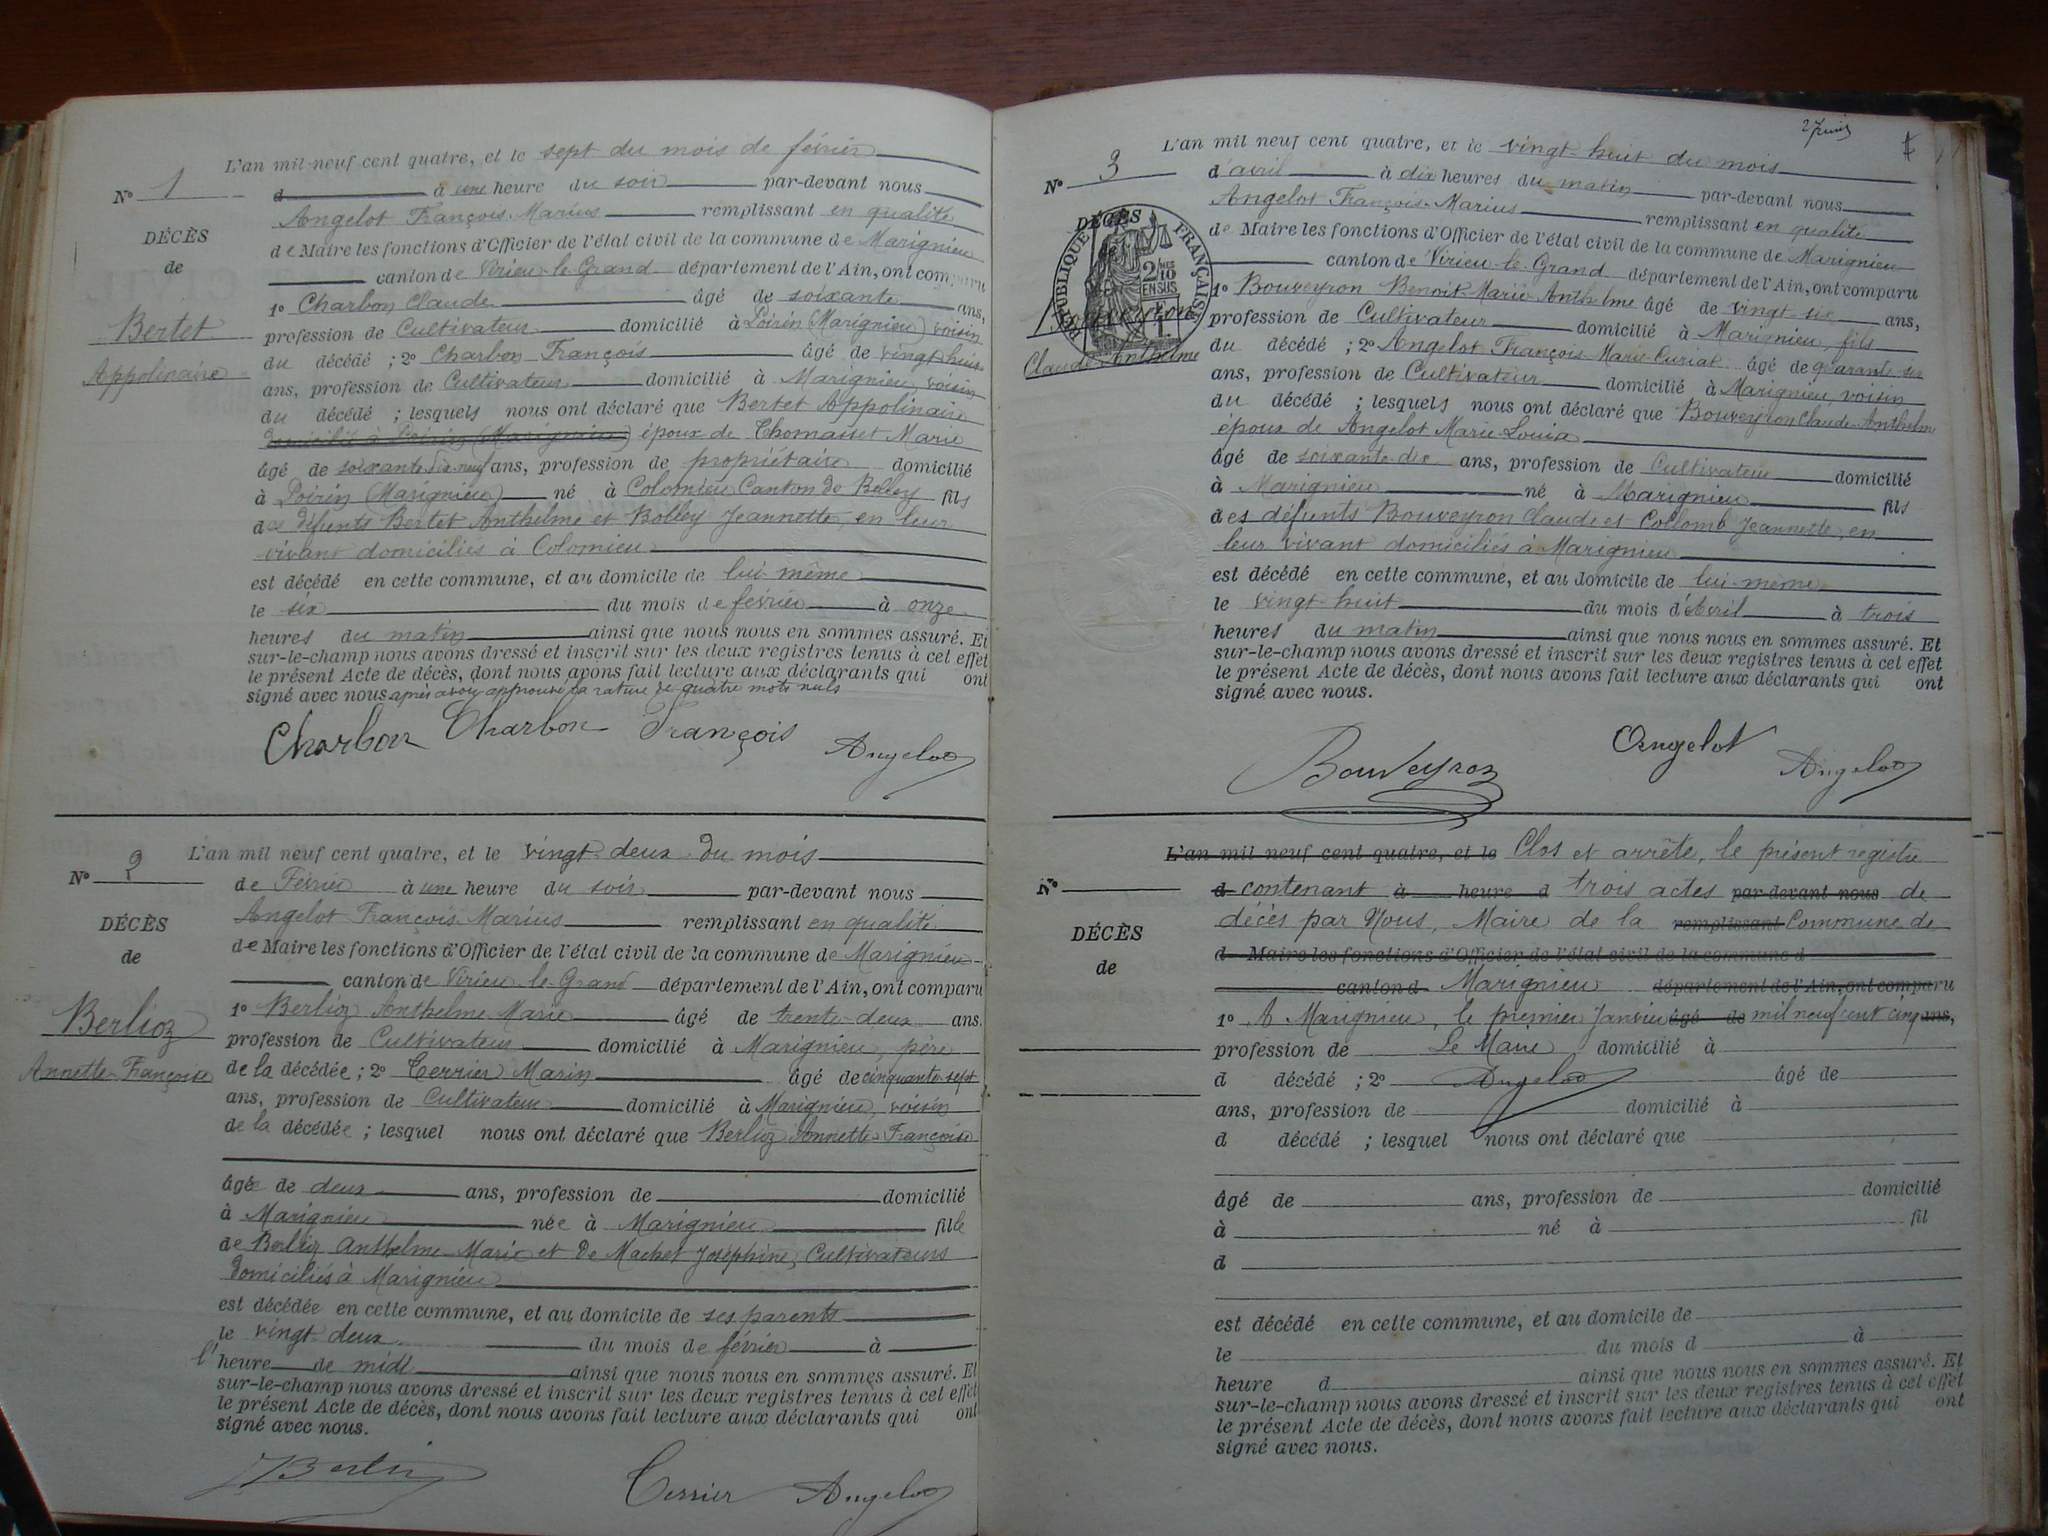 L'an mil neuf cent quatre, et le sept du mois de février
N° 1
d à une heure du soir par-devant nous
Angelot François-Marius remplissant en qualité
DÉCÈS
de Maire les fonctions d'Officier de l'état civil de la commune de Marignieu
de
canton de Virieu-le-Grand département de l'Ain, ont comparu
1° Charbon Claude âgé de soixante ans,
Bertet
profession de Cultivateur domicilié à Poirin (Marignieu) voisin
Appolinaire
du décédé ; 2° Charbon François âgé de vingt-huit
ans, profession de Cultivateur domicilié à Marignieu, voisin
du décédé ; lesquels nous ont déclaré que Bertet Appolinaire
domicilié à Poirin (Marignieu) époux de Thomasset Marie
âgé de soixante dix-neuf ans, profession de propriétaire domicilié
à Poirin (Marignieu) né à Colomieu Canton de Belley fils
des défunts Bertet Anthelme et Bolley Jeannette, en leur
vivant domiciliés à Colomieu
est décédé en cette commune, et au domicile de lui-même
le six du mois de février à onze
heures du matin ainsi que nous nous en sommes assuré. Et
sur-le-champ nous avons dressé et inscrit sur les deux registres tenus à cet effet
le présent Acte de décès, dont nous avons fait lecture aux déclarants qui ont
signé avec nous après avoir approuvé la rature de quatre mots nuls
Charbon Charbon François Angelot
L'an mil neuf cent quatre, et le vingt-deux du mois
N° 2
de Février à une heure du soir par-devant nous
Angelot François-Marius remplissant en qualité
DÉCÈS
de Maire les fonctions d'Officier de l'état civil de la commune de Marignieu
de
canton de Virieu-le-Grand département de l'Ain, ont comparu
1° Berlioz Anthelme Marie âgé de trente-deux ans.
Berlioz
profession de Cultivateur domicilié à Marignieu, père
Annette-Françoise
de la décédée ; 2° Terrier Marin âgé de cinquante-sept
ans, profession de Cultivateur domicilié à Marignieu, voisin
de la décédée ; lesquel nous ont déclaré que Berlioz Annette-Françoise
âgée de deux ans, profession de domicilié
à Marignieu née à Marignieu fille
de Berlioz Anthelme-Marie et de Machet Joséphine, Cultivateurs
domiciliés à Marignieu
est décédée en cette commune, et au domicile de ses parents
le vingt-deux du mois de février à
l'heure de midi ainsi que nous nous en sommes assuré. Et
sur-le-champ nous avons dressé et inscrit sur les deux registres tenus à cet effet
le présent Acte de décès, dont nous avons fait lecture aux déclarants qui ont
signé avec nous.
Terrier Angelot
L'an mil neuf cent quatre, et le vingt-huit du mois
N° 3
d'avril à dix heures du matin par-devant nous
Angelot François-Marius remplissant en qualité
DÉCÈS
de Maire les fonctions d'Officier de l'état civil de la commune de Marignieu
RÉPUBLIQUE FRANÇAISE
2/10
EN SUS
canton de Virieu-le-Grand département de l'Ain, ont comparu
1° Bouveyron Benoit-Marie Anthelme âgé de vingt six ans,
profession de Cultivateur domicilié à Marignieu, fils
Claude-Anthelme
du décédé ; 2° Angelot François-Marie âgé de quarante six
ans, profession de Cultivateur domicilié à Marignieu, voisin
du décédé ; lesquels nous ont déclaré que Bouveyron Claude-Anthelme
époux de Angelot Marie-Louise
âgé de soixante-dix ans, profession de Cultivateur domicilié
à Marignieu né à Marignieu fils
des défunts Bouveyron Claude et Collomb Jeannette, en
leur vivant domiciliés à Marignieu
est décédé en cette commune, et au domicile de lui-même
le vingt-huit du mois d'Avril à trois
heures du matin ainsi que nous nous en sommes assuré. Et
sur-le-champ nous avons dressé et inscrit sur les deux registres tenus à cet effet
le présent Acte de décès, dont nous avons fait lecture aux déclarants qui ont
signé avec nous.
Bouveyron Angelot Angelot
L'an mil neuf cent quatre, et le Clos et arrêté, le présent registre
N°
d contenant à heure d trois actes par-devant nous de
décès par Nous, Maire de la remplissant Commune de
DÉCÈS
d Maire les fonctions d'Officier de l'état civil de la commune d
de
canton d Marignieu département de l'Ain, ont comparu
1° A Marignieu, le premier Janvier âgé de mil neuf cent cinq ans,
profession de Le Maire domicilié à
d décédé ; 2° Angelot âgé de
ans, profession de domicilié à
d décédé ; lesquel nous ont déclaré que
âgé de ans, profession de domicilié
à né à fil
d
est décédé en cette commune, et au domicile de
le du mois d à
heure d ainsi que nous nous en sommes assuré. Et
sur-le-champ nous avons dressé et inscrit sur les deux registres tenus à cet effet
le présent Acte de décès, dont nous avons fait lecture aux déclarants qui ont
signé avec nous.